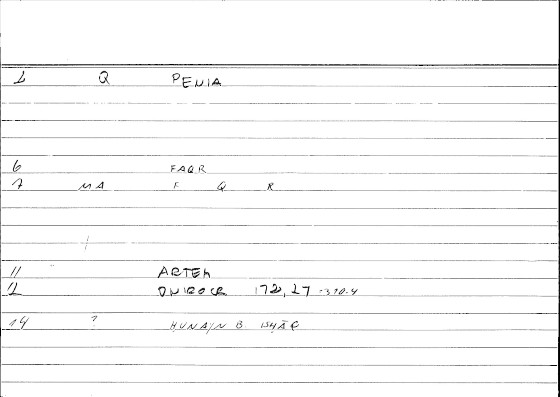 2 Q PENIA
6 FAQR
7 MA F Q R
11 ARTEM
12 ONIROCR 172,27 -370.4
14 ? HUNAYN B ISHĀQ